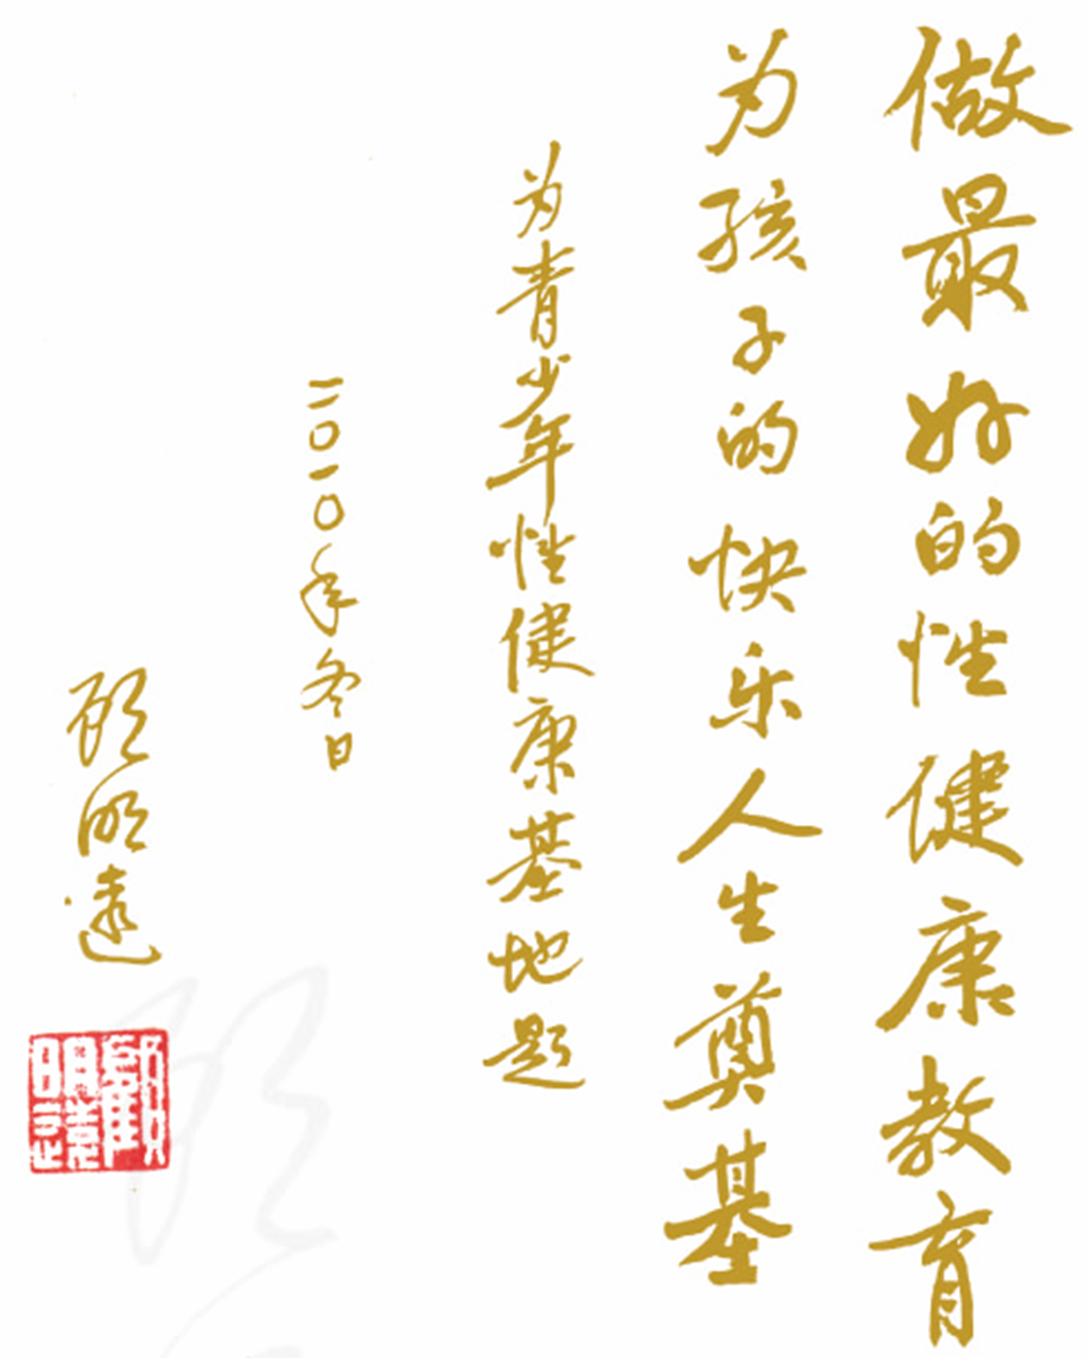 做最好的性健康教育
为孩子的快乐人生奠基
为青少年性健康基地题
二〇一〇年冬日
顾明远
顧明遠